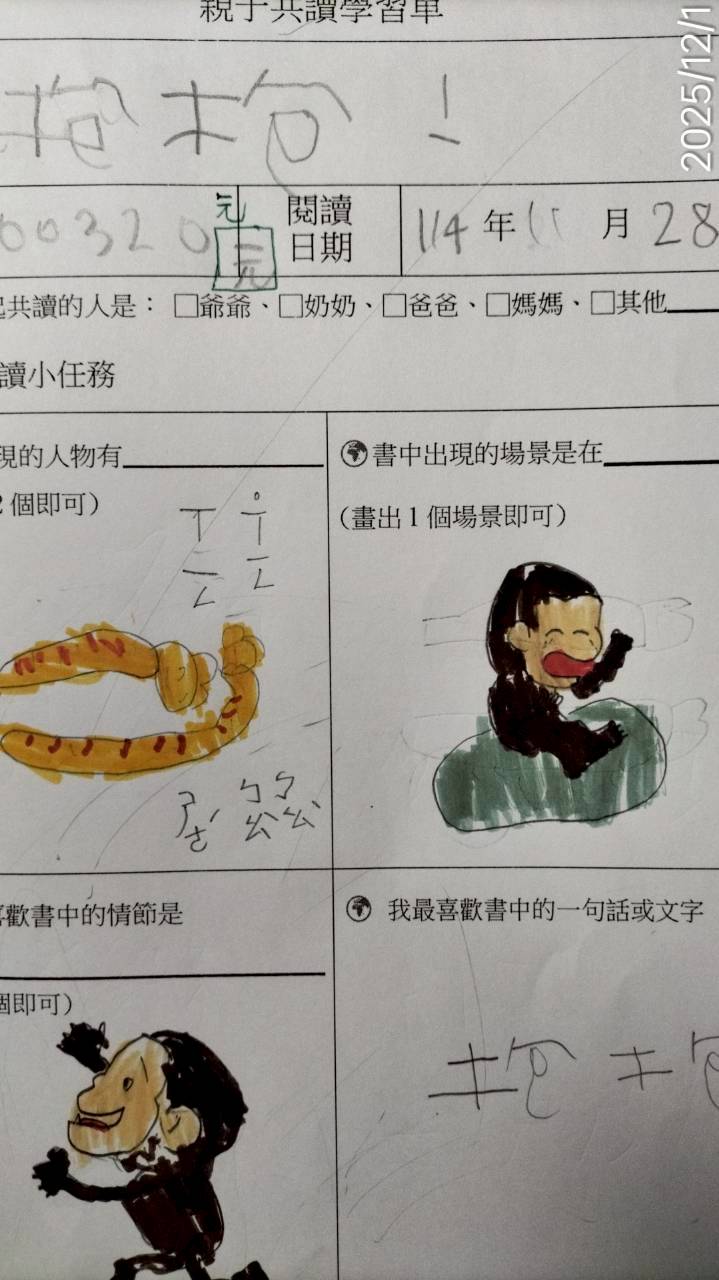 親子共讀學習單
2025/12/1
抱抱!
00320元
元
閱讀
日期
114年11月28
共讀的人是：□爺爺、□奶奶、□爸爸、□媽媽、□其他
讀小任務
現的人物有
2個即可）
書中出現的場景是在
（畫出1個場景即可）
喜歡書中的情節是
個即可）
我最喜歡書中的一句話或文字
抱抱